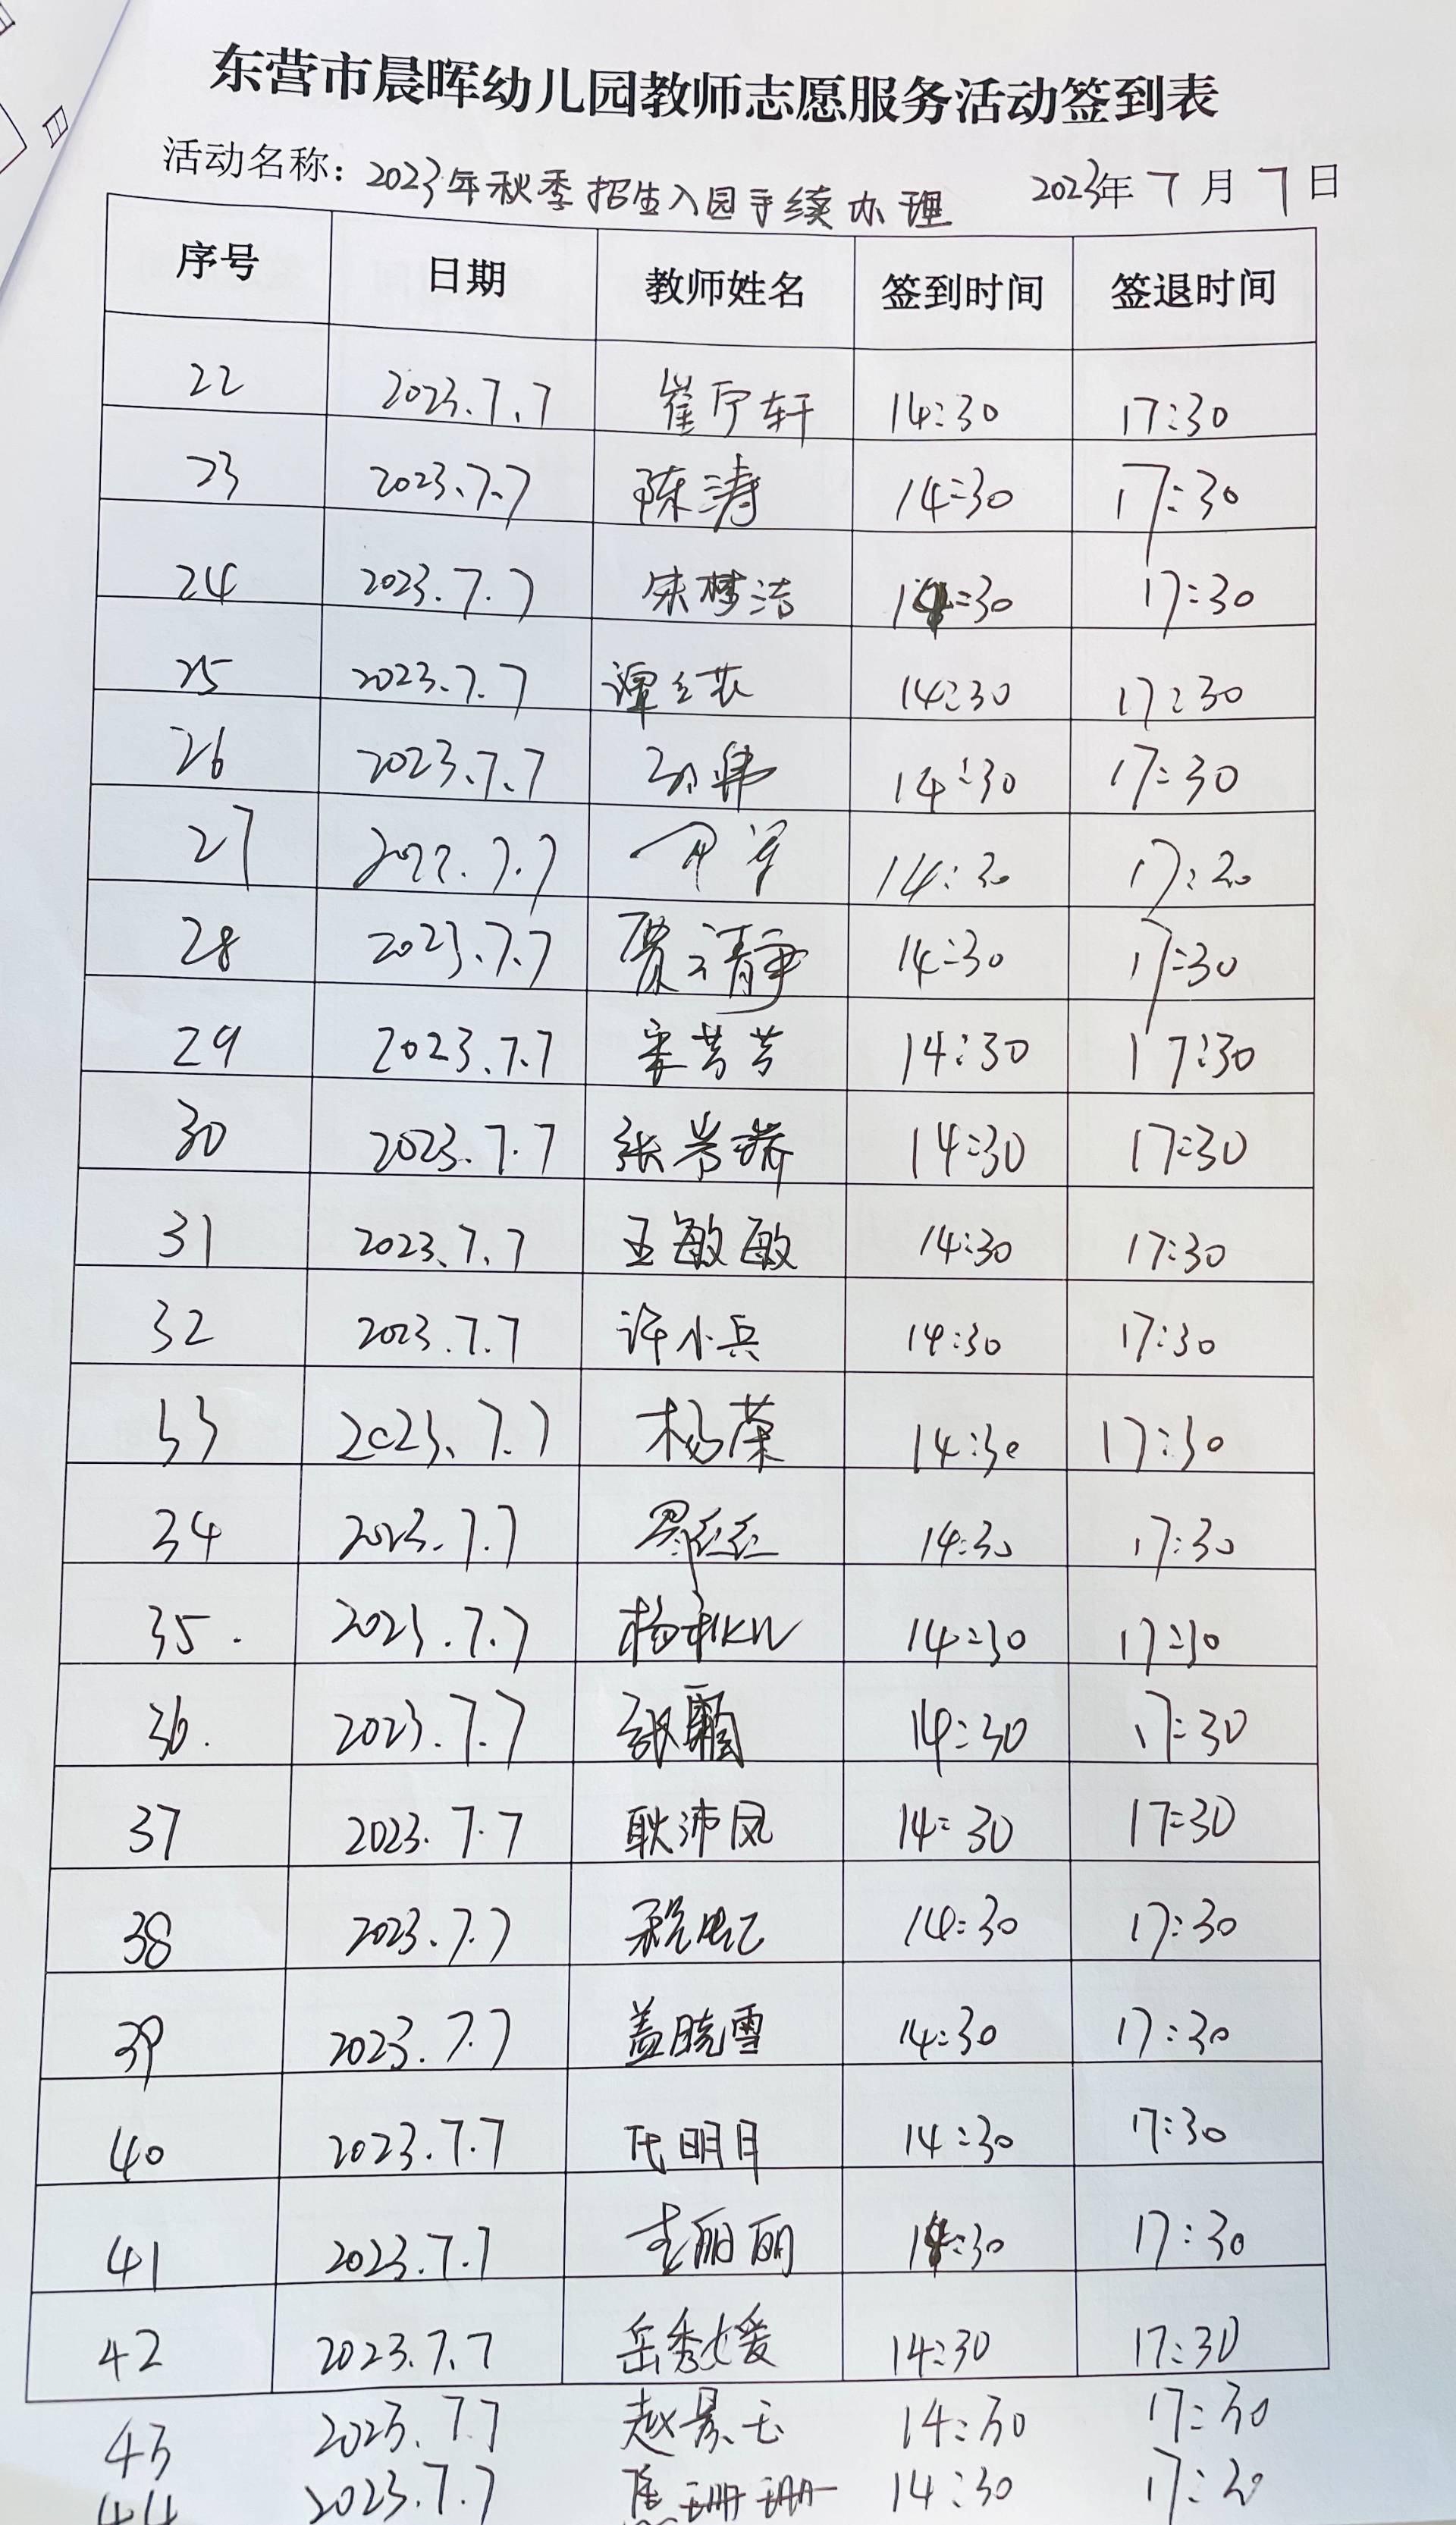 东营市晨晖幼儿园教师志愿服务活动签到表
活动名称：2023年秋季招生入园手续办理 2023年7月7日
序号 日期 教师姓名 签到时间 签退时间
22 2023.7.7 崔宁轩 14:30 17:30
23 2023.7.7 陈涛 14:30 17:30
24 2023.7.7 宋梦洁 14:30 17:30
25 2023.7.7 14:30 17:30
26 2023.7.7 14:30 17:30
27 14:30 17:30
28 2023.7.7 贾云静 14:30 17:30
29 2023.7.7 李芳芳 14:30 17:30
30 2023.7.7 14:30 17:30
31 2023.7.7 王敏敏 14:30 17:30
32 2023.7.7 许小兵 14:30 17:30
33 2023.7.7 杨荣 14:30 17:30
34 2023.7.7 14:30 17:30
35. 2023.7.7 14:30 17:30
36. 2023.7.7 14:30 17:30
37 2023.7.7 耿沛凤 14:30 17:30
38 2023.7.7 14:30 17:30
39 2023.7.7 盖晓雪 14:30 17:30
40 2023.7.7 14:30 17:30
41 2023.7.7 14:30 17:30
42 2023.7.7 岳秀媛 14:30 17:30
43 2023.7.7 赵景玉 14:30 17:30
44 2023.7.7 珊珊 14:30 17:30